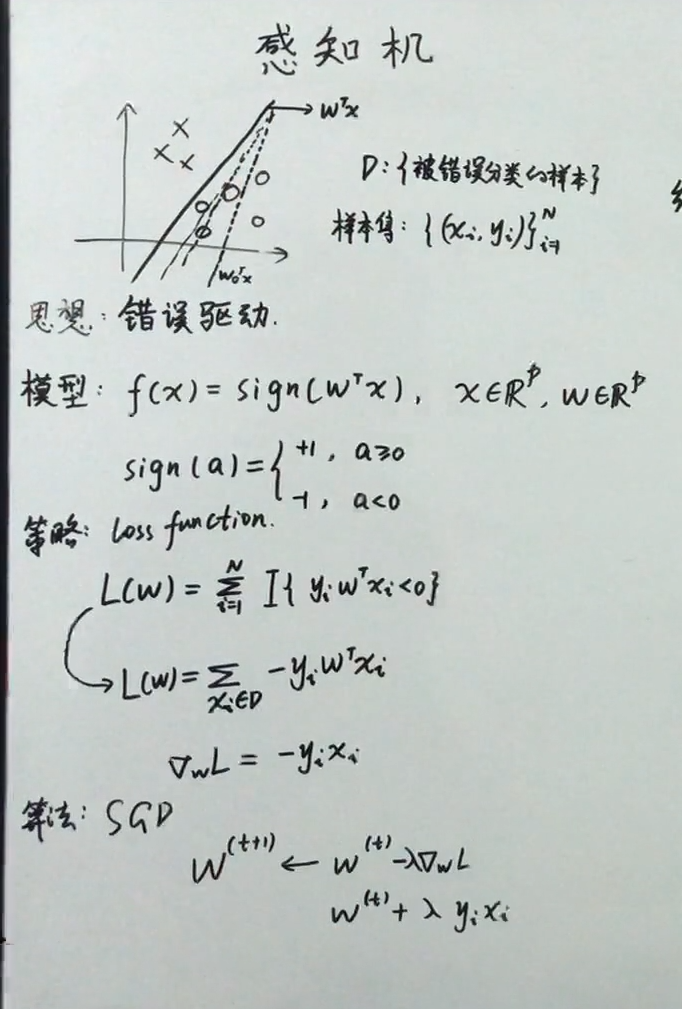 感知机
wᵀx
D:{被错误分类的样本}
样本集: {(xᵢ, yᵢ)}ᵢ₌₁ᴺ
w₀ᵀx
思想: 错误驱动.
模型: f(x) = sign(wᵀx), x∈ℝᵖ, w∈ℝᵖ
sign(a) = { +1, a≥0
-1, a<0
策略: loss function.
L(w) = ∑ᵢ₌₁ᴺ I{ yᵢwᵀxᵢ<0}
L(w) = ∑_{xᵢ∈D} -yᵢwᵀxᵢ
∇_w L = -yᵢxᵢ
算法: SGD
w⁽ᵗ⁺¹⁾ ← w⁽ᵗ⁾-λ∇_w L
w⁽ᵗ⁾ + λ yᵢxᵢ